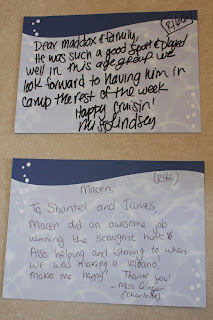 (R166)
Dear maddox & family,
He was such a good Sport & played
well in this age group we
look forward to having him in
camp the rest of the week
Happy Cruisin!
Miss Lindsey
Macen, (R166)
To Shantel and James,
Macen did an awesome job
winning the scavgent hunt &
Also helping and listening to when
we was making a volcano,
makes me happy! Thank you!
- Miss Ginger
(Charlotte)